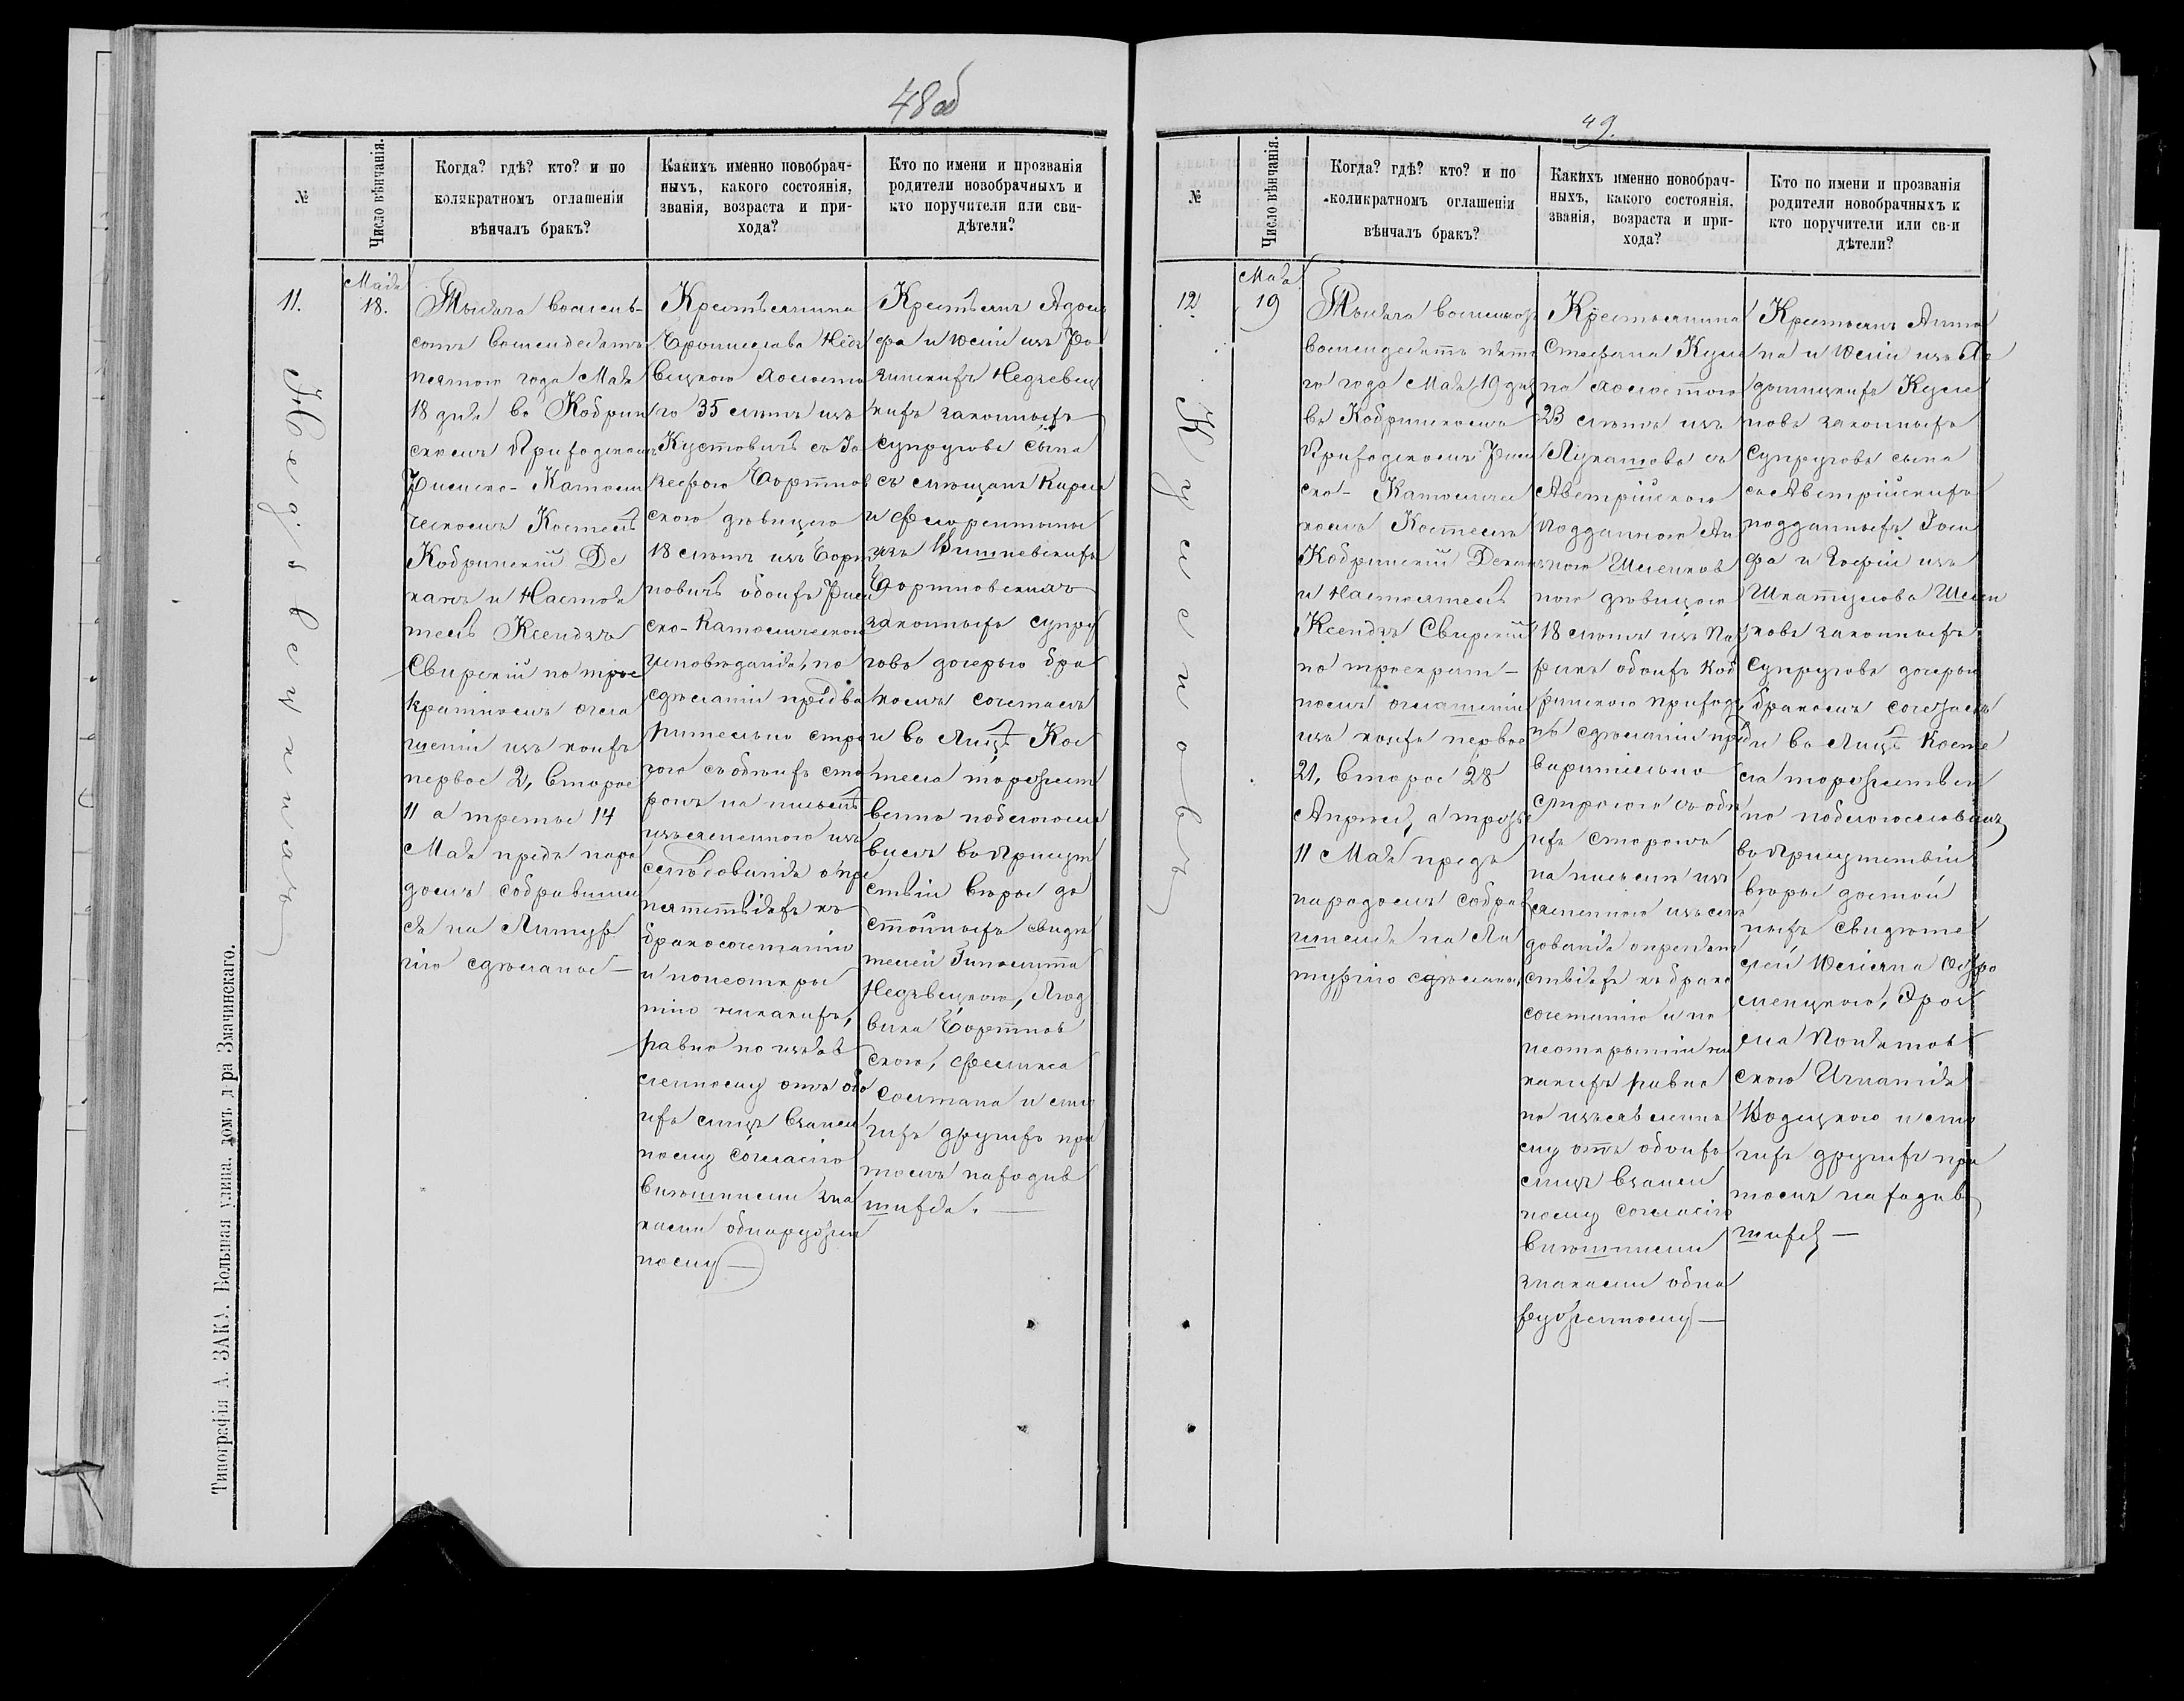 48об
№
Число вѣнчанія.
Когда? гдѣ? кто? и по
коликратномъ оглашеніи
вѣнчалъ бракъ?
Какихъ именно новобрач-
ныхъ, какого состоянія,
званія, возраста и при-
хода?
Кто по имени и прозванія
родители новобрачныхъ и
кто поручители или сви-
дѣтели?
11.
Недзвецкихъ
Мая
18.
Тысяча восемь-
сотъ восемдесятъ
пятого года Мая
18 дня въ Кобрин
скомъ Приходскомъ
Римско-Католи
ческомъ Костелѣ
Кобринскій Де
канъ и Настоя
тель Ксендзъ
Свирскій по трое
кратномъ огла
шеніи изъ коихъ
первое 2, второе
11 а третье 14
Мая предъ наро
домъ собравшим
ся на Литур
гію сдѣланое —
Крестьянина
Бронислава Недз
вецкого холосто
го 35 лѣтъ изъ
Кустовичъ съ Іо
зефою Бортнов
скою дѣвицею
18 лѣтъ изъ Борт
новичъ обоихъ Рим
ско-Католическои
исповѣданія, по
сдѣланіи предва
рительно стро
гого съ обѣихъ сто
ронъ на письмѣ
изъясненного изъ
слѣдованія о пре
пятствіяхъ къ
бракосочетанію
и по неоткры
тію никакихъ,
равно по изъяв
ленному отъ обо
ихъ лицъ взаим
ному согласію
внѣшними зна
ками обнаружен
ному —
Крестьянъ Адоль
фа и Юліи изъ Ро
Недзвец
кихъ законныхъ
супруговъ сына
съ мѣщанъ Карла
и Флорентины
изъ Вишневскихъ
Бортновскихъ
законныхъ супру
говъ дочерью бра
комъ сочеталъ
и въ Лицѣ Кос
тела торжест
венно поблагосло
вилъ въ присут
ствіи вѣры до
стойныхъ свидѣ
телей Гиполита
Недзвецкого, Люд
вика Бортнов
ского, Феликса
Солтана и мно
гихъ другихъ при
томъ находив
шихся. —
Типографія А. ЗАКА. Большая улица, домъ д-ра Змачинскаго.
49.
№
Число вѣнчанія.
Когда? гдѣ? кто? и по
коликратномъ оглашеніи
вѣнчалъ бракъ?
Какихъ именно новобрач-
ныхъ, какого состоянія,
званія, возраста и при-
хода?
Кто по имени и прозванія
родители новобрачныхъ и
кто поручители или св-и
дѣтели?
12.
Куленовъ
Мая
19
Тысяча восемьсотъ
восемдесятъ пято
го года Мая 19 дня
въ Кобринскомъ
Приходскомъ Рим
ско- Католичес
комъ Костелѣ
Кобринскій Декан
и Настоятель
Ксендзъ Свирскій
по троекрат-
номъ оглашеніи
изъ коихъ первое
21, второе 28
Апрѣля, а третье
11 Мая предъ
народомъ собрав
шимся на Ли
тургію сдѣланое
Крестьянина
Стефана Куле
на холостого
23 лѣтъ изъ
съ
Австрійскою
подданною Ан
ною Шленков
ною дѣвицею
18 лѣтъ изъ
обоихъ Коб
ринского прихода
по сдѣланіи пред
варительно
строгого съ обѣ
ихъ сторонъ
на письмѣ изъ
ясненного изслѣ
дованія о препят
ствіяхъ къ брако
сочетанію и по
неоткрытіи ни
какихъ равно
по изъявленно
му отъ обоихъ
лицъ взаим
ному согласію
внѣшними
знаками обна
руженному —
Крестьянъ Анто
на и Юліи изъ
Куле
новъ законныхъ
супруговъ сына
съ Австрійскихъ
подданныхъ Іоси
фа и Зофіи изъ
Шлен
ковъ законныхъ
супруговъ дочерью
бракомъ сочеталъ
и въ Лицѣ Косте
ла торжествен
но поблагословилъ
въ Присутствіи
вѣры достой
ныхъ свидѣте
лей Юліана
Понятов
ского Игнатія
Водецкого и мно
гихъ другихъ при
томъ находив
шихся —